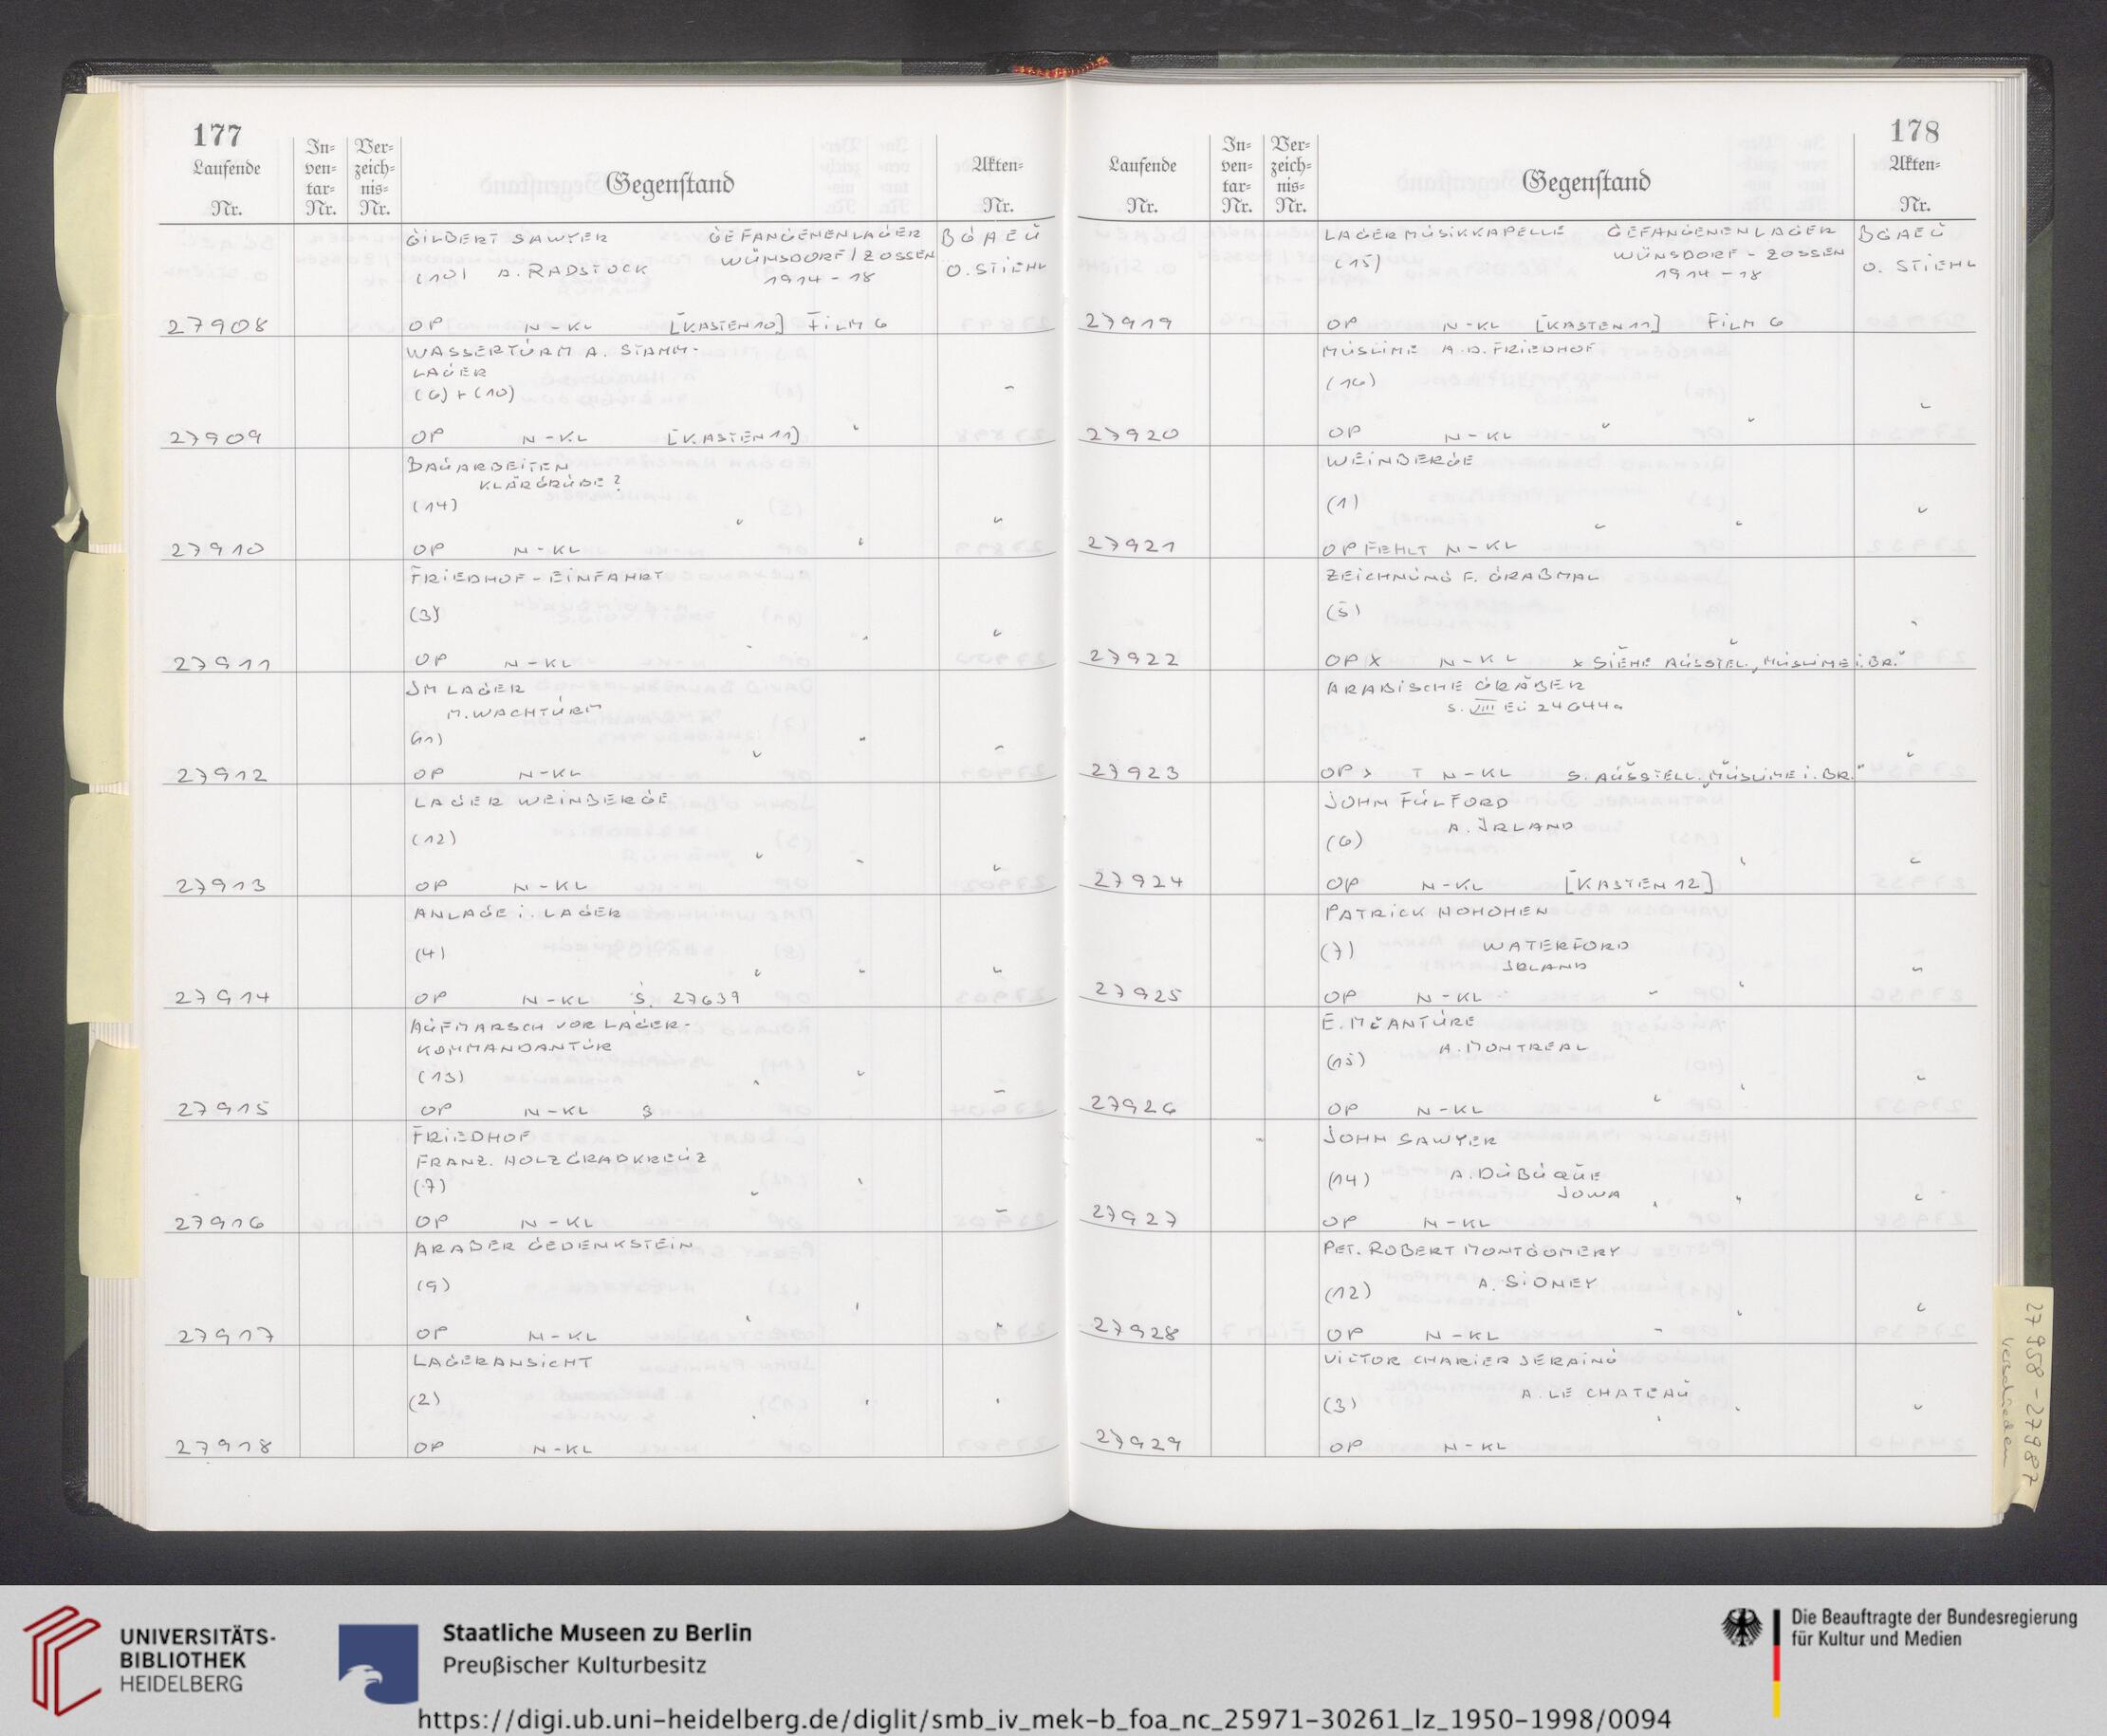 177
Laufende
Nr.
In-
ven-
tar-
Nr.
Ver-
zeich-
nis-
Nr.
Gegenstand
Akten-
Nr.
GILBERT SAWYER GEFANGENENLAGER BGAEU
(10) A. RADSTOCK WÜNSDORF / ZOSSEN O. STIEHL
1914-18
27908 OP N-KL [KASTEN 10] FILM 6
WASSERTURM A. STAMM-
LAGER
(6) + (10) "
27909 OP N-KL [KASTEN 11] "
BAUARBEITEN
KLÄRGRUBE?
(14) " "
27910 OP N-KL "
FRIEDHOF-EINFAHRT
(3) " "
27911 OP N-KL "
JM LAGER
M. WACHTURM
(11) " " "
27912 OP N-KL
LAGER WEINBERGE
(12) " " "
27913 OP N-KL
ANLAGE i. LAGER
(4) " " "
27914 OP N-KL S. 27639
AUFMARSCH VOR LAGER-
KOMMANDANTUR
(13) " " "
27915 OP N-KL
FRIEDHOF
FRANZ. HOLZGRABKREUZ
(7) " " "
27916 OP N-KL
ARABER GEDENKSTEIN
(9) " " "
27917 OP N-KL
LAGERANSICHT
(2) " " "
27918 OP N-KL
178
Laufende
Nr.
In-
ven-
tar-
Nr.
Ver-
zeich-
nis-
Nr.
Gegenstand
Akten-
Nr.
LAGERMUSIKKAPELLE GEFANGENENLAGER BGAEU
(15) WÜNSDORF-ZOSSEN O. STIEHL
1914-18
27919 OP N-KL [KASTEN 11] FILM 6
MUSLIME A. D. FRIEDHOF
(16) "
27920 OP N-KL " "
WEINBERGE
(1) " " "
27921 OP FEHLT N-KL
ZEICHNUNG F. GRABMAL
(5) " "
27922 OP X N-KL X SIEHE AUSSTEL. "MUSLIME i. BR."
ARABISCHE GRÄBER
S. VIII Eu 24644a
"
27923 OP X N-KL S. AUSSTELL. "MUSLIME i. BR."
JOHN FULFORD
A. IRLAND
(6) " "
27924 OP N-KL [KASTEN 12]
PATRICK HOHOHEN
(7) WATERFORD
IRLAND "
27925 OP N-KL " "
E. McANTURE
A. MONTREAL
(15) "
27926 OP N-KL " "
JOHN SAWYER
(14) A. DUBUQUE
JOWA " " "
27927 OP N-KL
PET. ROBERT MONTGOMERY
(12) A. SIDNEY
" "
27928 OP N-KL "
VICTOR CHARIER
(3) A. LE CHATEAU
" " "
27929 OP N-KL
27958-27987
verschieden
UNIVERSITÄTS-
BIBLIOTHEK
HEIDELBERG
Staatliche Museen zu Berlin
Preußischer Kulturbesitz
Die Beauftragte der Bundesregierung
für Kultur und Medien
https://digi.ub.uni-heidelberg.de/diglit/smb_iv_mek-b_foa_nc_25971-30261_lz_1950-1998/0094